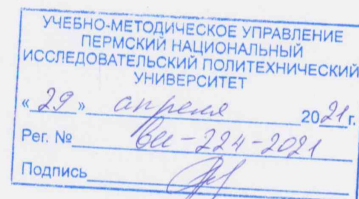 УЧЕБНО-МЕТОДИЧЕСКОЕ УПРАВЛЕНИЕ
ПЕРМСКИЙ НАЦИОНАЛЬНЫЙ
ИССЛЕДОВАТЕЛЬСКИЙ ПОЛИТЕХНИЧЕСКИЙ
УНИВЕРСИТЕТ
« 29 » апреля 2021 г.
Рег. № ви-224-2021
Подпись